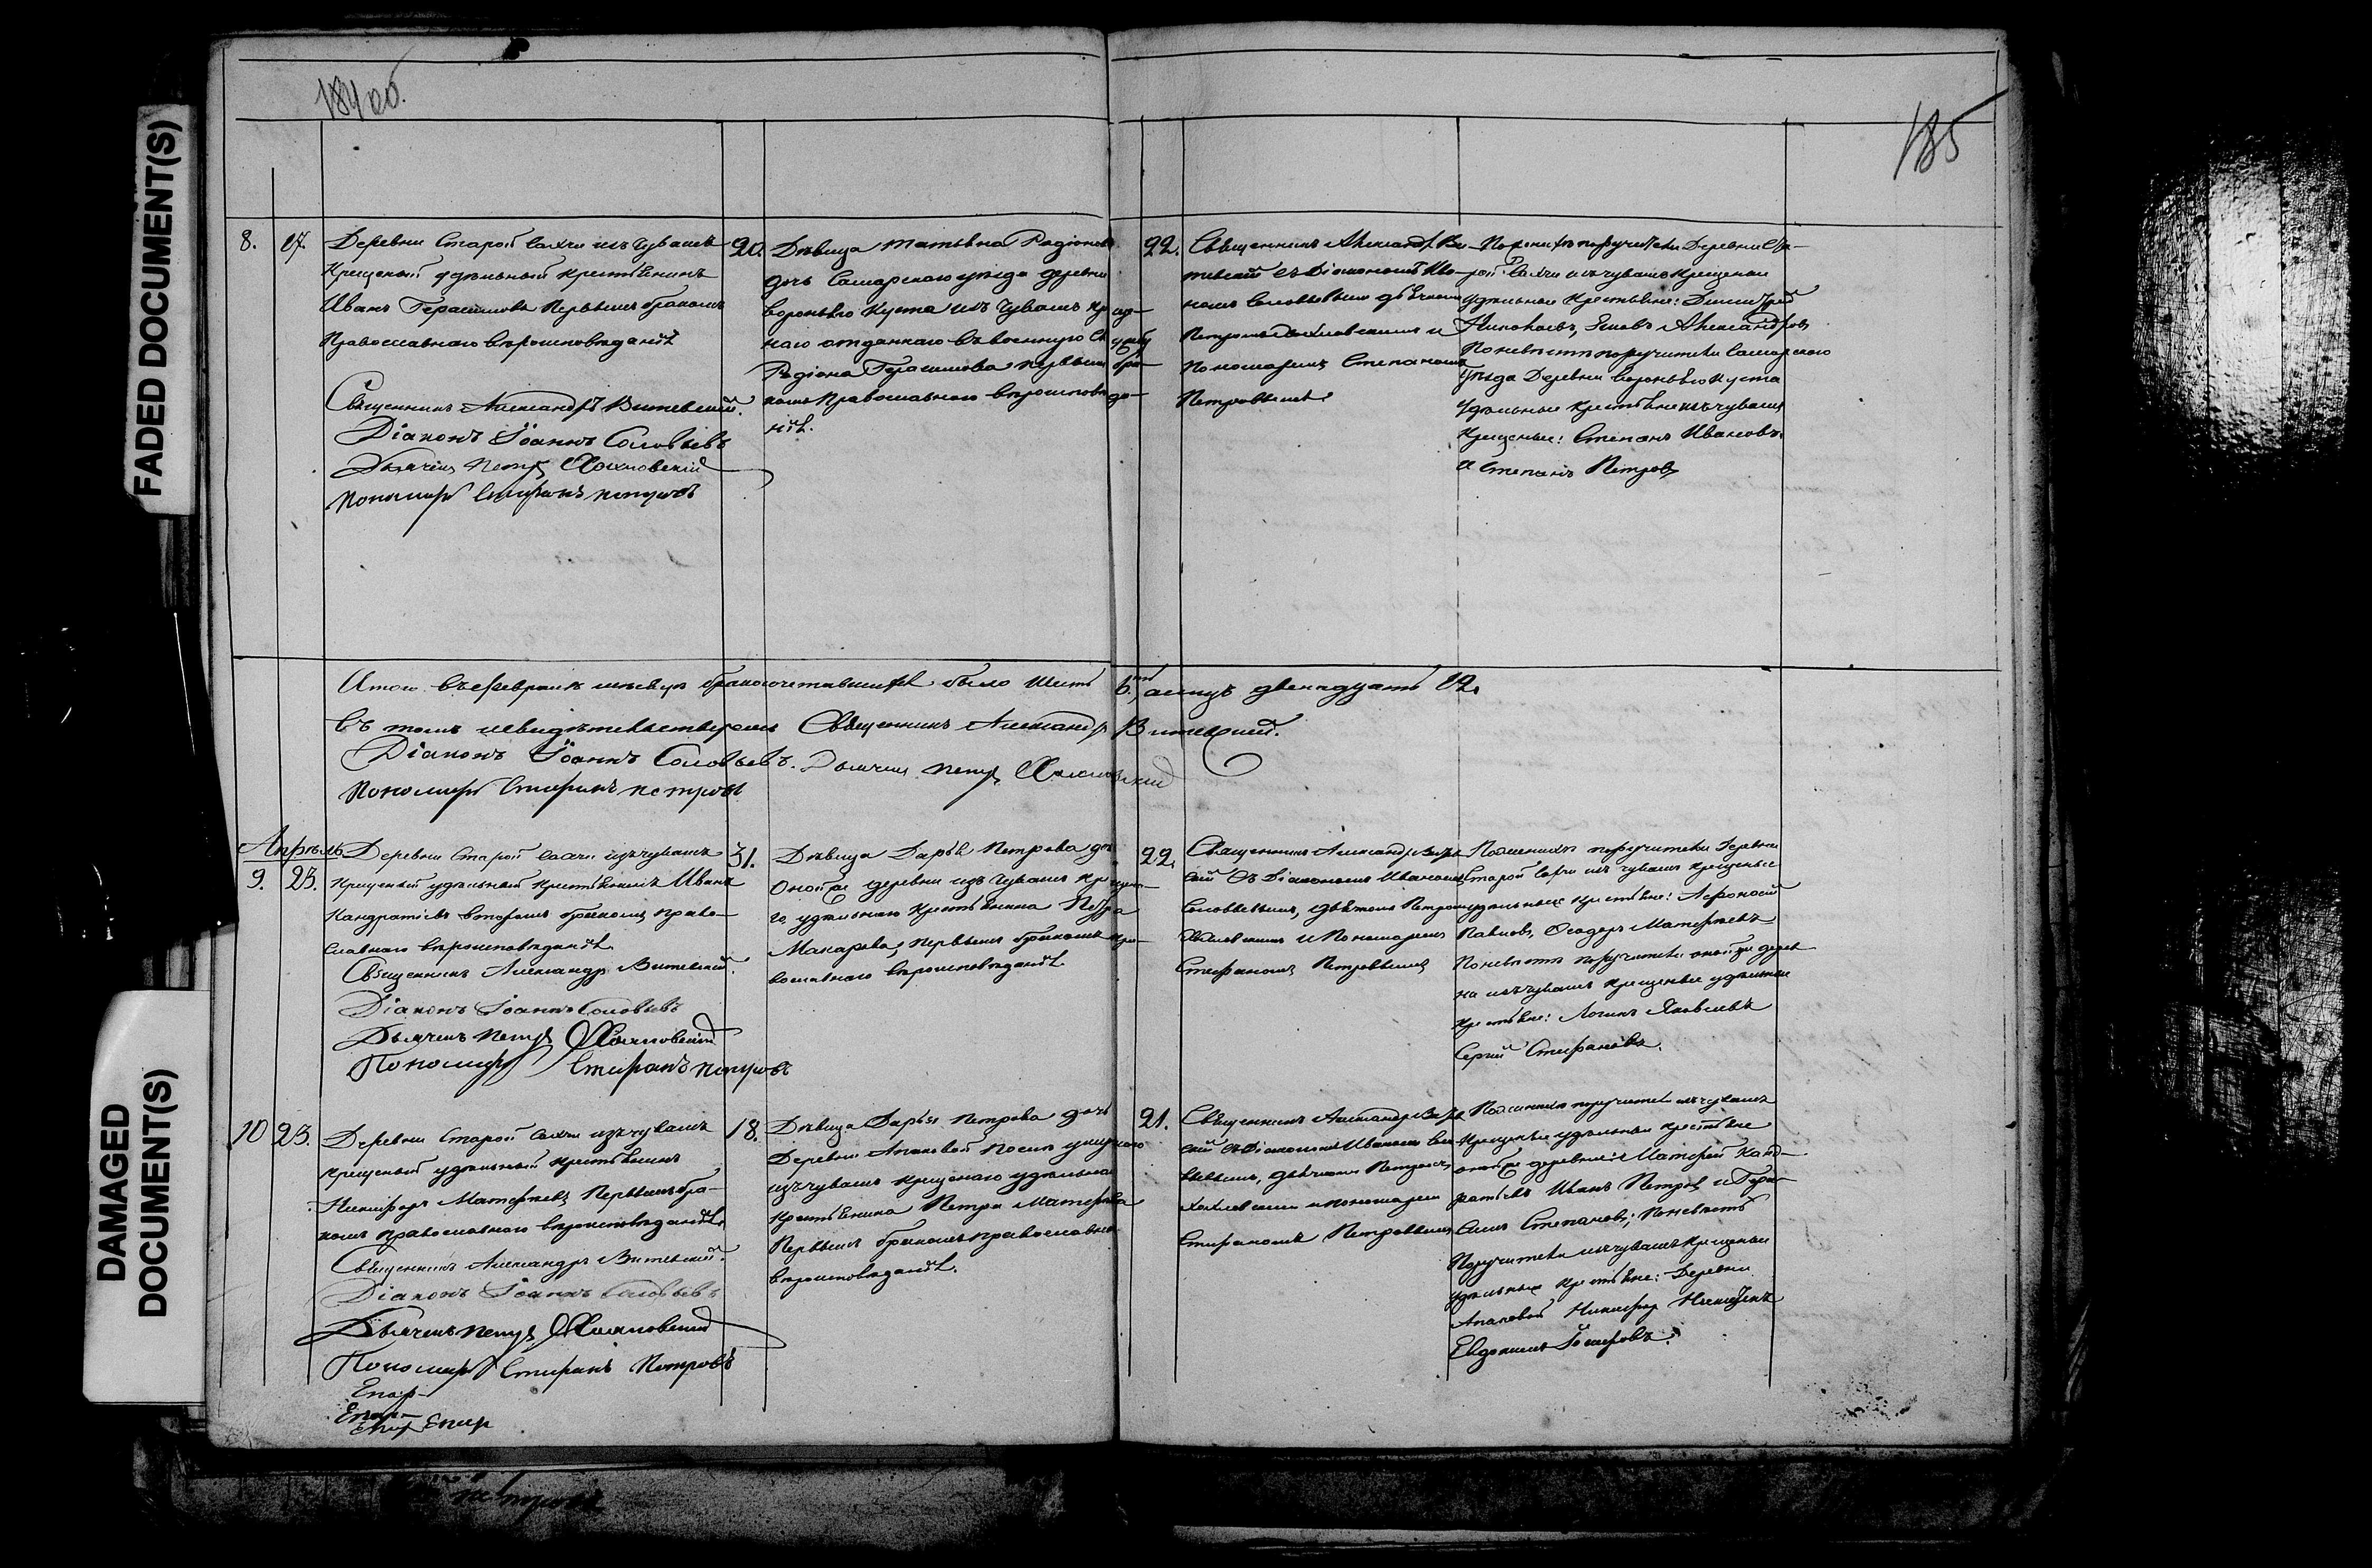 FADED DOCUMENT(S)
DAMAGED
DOCUMENT(S)
184 об.
185
8. 17.
Деревни Старой Сахчи изъ Чувашъ
Крещеный удѣльный крестьянинъ
Иванъ Герасимовъ Первымъ бракомъ
Православнаго вѣроисповѣданія
Священникъ Александръ Витевскій.
Діаконъ Іоаннъ Соловьевъ
Дьячекъ Петръ
Пономарь Стефанъ Петровъ
20.
Дѣвица Татьяна Радіонова
дочь Самарскаго уѣзда деревни
Вороньяго куста изъ Чувашъ креще-
наго отданнаго въ военную службу
Радіона Герасимова первымъ бра-
комъ Православнаго вѣроисповѣда-
нія.
22.
Священникъ Александръ Ви-
тевскій съ Діакономъ Ива-
номъ Соловьевымъ дьячкомъ
Петромъ и
Пономаремъ Степаномъ
Петровымъ
По женихѣ поручители Деревни Ста-
рой Сахчи изъ чувашъ крещеные
удѣльные крестьяне: Димитрій
Николаевъ, Яковъ Александровъ
По невѣстѣ поручители Самарскаго
уѣзда Деревни Вороньяго куста
удѣльные крестьяне изъ чувашъ
крещеные: Степанъ Ивановъ
и Степанъ Петровъ
Итого въ февралѣ мѣсяцѣ бракосочетавшихся было шесть 6, а лицъ двенадцать 12.
Въ томъ свидѣтельствуемъ Священникъ Александръ Витевскій.
Діаконъ Іоаннъ Соловьевъ. Дьячекъ Петръ
Пономарь Стефанъ Петровъ
Апрѣль
9. 23.
Деревни Старой Сахчи изъ чувашъ
крещеный удѣльный крестьянинъ Иванъ
Кандратьевъ вторымъ бракомъ право-
славнаго вѣроисповѣданія.
Священникъ Александръ Витевскій.
Діаконъ Іоаннъ Соловьевъ
Дьячекъ Петръ
Пономарь Стефанъ Петровъ
31.
Дѣвица Дарья Петрова дочь
Оной же деревни изъ Чувашъ крещена-
го удѣльнаго крестьянина Петра
Макарова, первымъ бракомъ пра-
вославнаго вѣроисповѣданія
22.
Священникъ Александръ Витев-
скій съ Діакономъ Иваномъ
Соловьевымъ, дьячкомъ Петромъ
и Пономаремъ
Стефаномъ Петровымъ
По женихѣ поручители Деревни
Старой Сахчи изъ чувашъ крещеные
удѣльные крестьяне: Афонасій
Павловъ, Ѳеодоръ Матфеевъ
По невѣстѣ поручители оной же дерев-
ни изъ чувашъ крещеные удѣльные
крестьяне: Логинъ Яковлевъ
Сергій Стефановъ.
10 23.
Деревни Старой Сахчи изъ чувашъ
крещеный удѣльный крестьянинъ
Никифоръ Матфеевъ Первымъ бра-
комъ православнаго вѣроисповѣданія.
Священникъ Александръ Витевскій.
Діаконъ Іоаннъ Соловьевъ
Дьячекъ Петръ
Пономарь Стефанъ Петровъ
18.
Дѣвица Дарья Петрова дочь
Деревни Апаковой послѣ умершаго
изъ чувашъ крещенаго удѣльнаго
крестьянина Петра Матфеева
Первымъ бракомъ православнаго
вѣроисповѣданія.
21.
Священникъ Александръ Витев-
скій съ Діакономъ Иваномъ Соло-
вьевымъ, дьячкомъ Петромъ
и пономаремъ
Стефаномъ Петровымъ
По женихѣ поручители изъ чувашъ
крещеные удѣльные крестьяне
оной же деревни: Матфей Канд-
ратьевъ Иванъ Петровъ и Гера-
симъ Степановъ; По невѣстѣ
Поручители изъ чувашъ крещеные
удѣльные крестьяне: Деревни
Апаковой Никифоръ Никитинъ
Евдокимъ